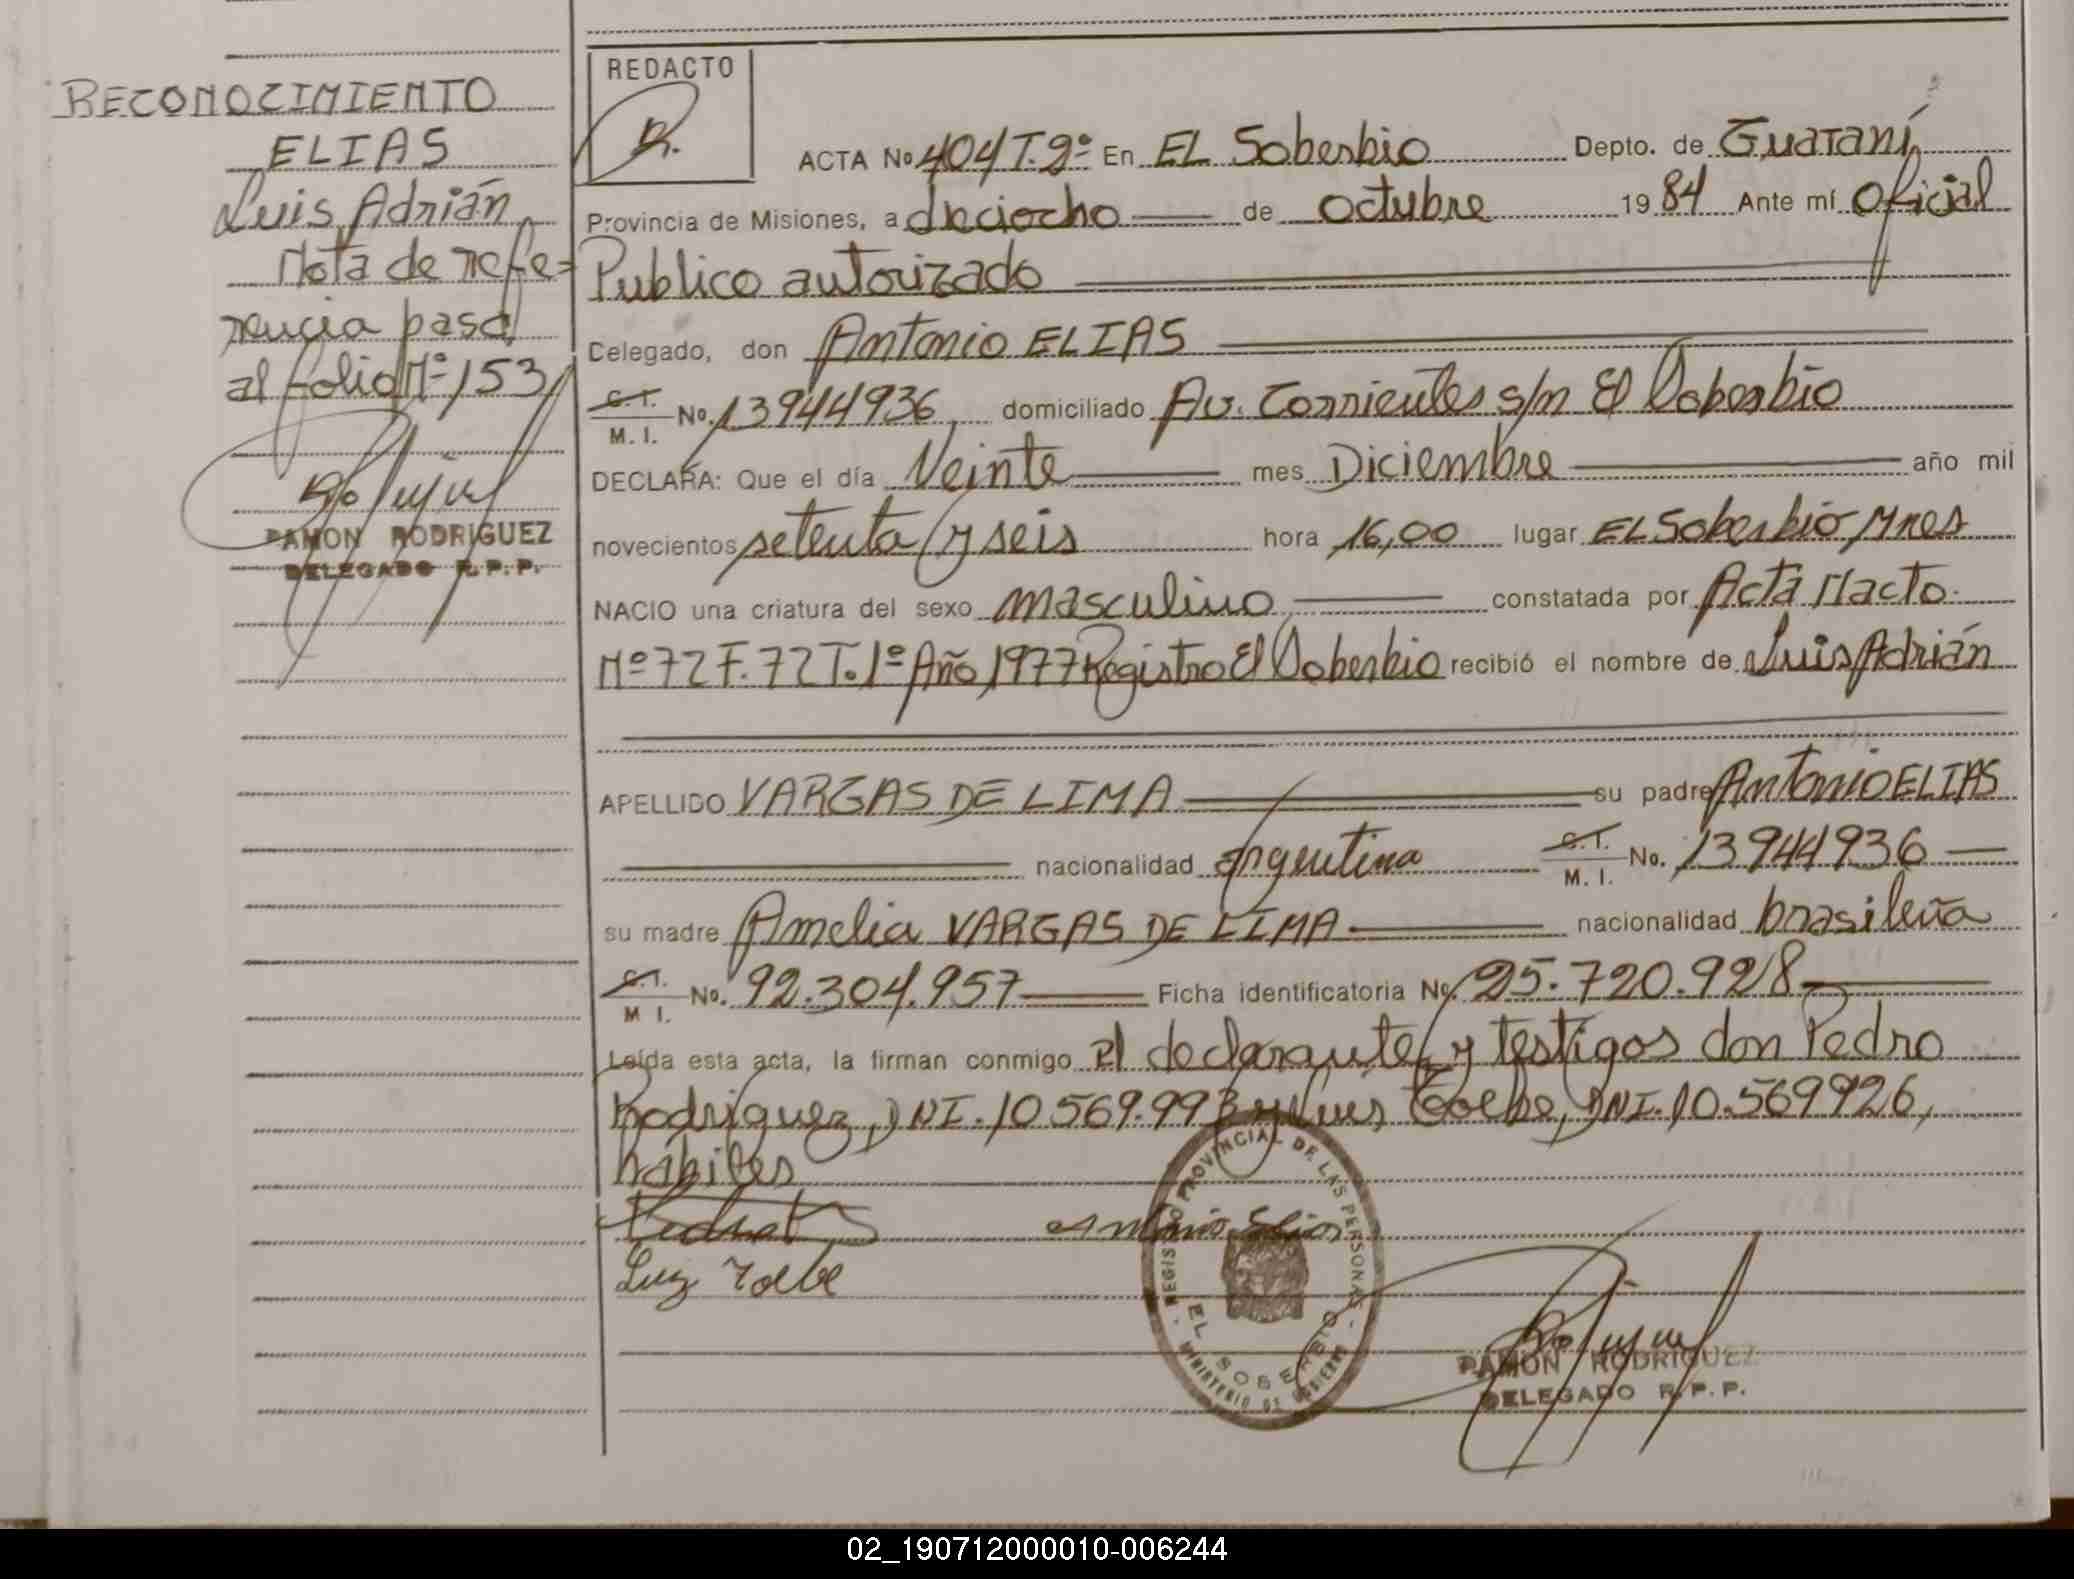 RECONOCIMIENTO
ELIAS
Luis Adrián
Nota de refe=
rencia pasa
al folio Nº 153
RAMON RODRIGUEZ
DELEGADO R.P.P.
REDACTO
R.
ACTA No 404 T.2º En EL Soberbio Depto. de Guaraní
Provincia de Misiones, a dieciocho de octubre 1984 Ante mí Oficial
Publico autorizado
Celegado, don Antonio ELIAS
C.I. M.I. No. 13944936 domiciliado Av. Corrientes s/n El Soberbio
DECLARA: Que el día Veinte mes Diciembre año mil
novecientos setenta y seis hora 16,00 lugar EL Soberbio Mnes
NACIO una criatura del sexo masculino constatada por Acta Nacto.
Nº 72 F. 72 T. 1º Año 1977 Registro El Soberbio recibió el nombre de Luis Adrián
APELLIDO VARGAS DE LIMA su padre Antonio ELIAS
nacionalidad argentina C.I. M.I. No. 13944936
su madre Amelia VARGAS DE LIMA nacionalidad brasileña
C.I. M I. No. 92.304.957 Ficha identificatoria No. 25.720.928
Leída esta acta, la firman conmigo el declarante y testigos don Pedro
Rodriguez, DNI. 10.569.993 y Luis Coelbe, DNI. 10.569926,
hábiles
Antonio Elias
REGISTRO PROVINCIAL DE LAS PERSONAS
EL SOBERBIO
MINISTERIO DE GOBIERNO
RAMON RODRIGUEZ
DELEGADO R.P.P.
02_190712000010-006244